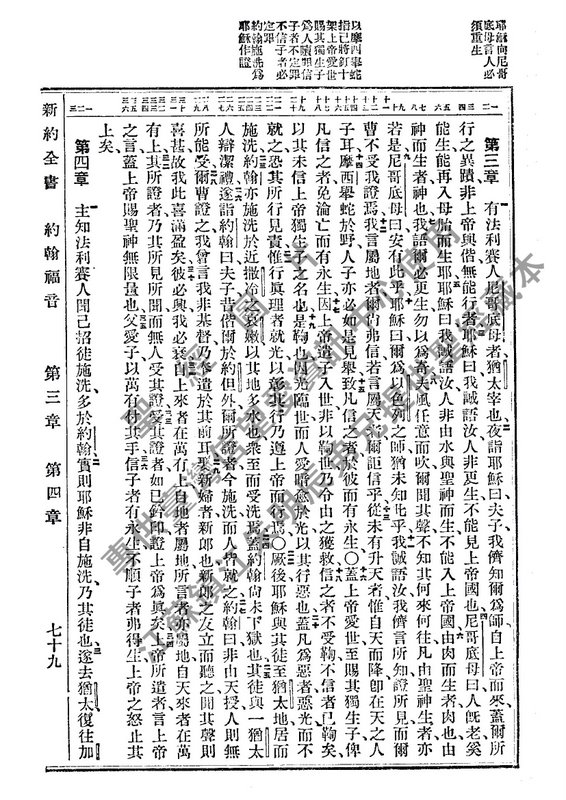 耶穌向尼哥
底母言人必
須重生
以摩西舉蛇
指己將釘十
架上帝愛世
賜其獨生子
爲人贖罪信
子者不定罪
不信子者必
定罪
約翰施洗爲
耶穌作證
第三章 有法利賽人尼哥底母者猶太宰也夜詣耶穌曰夫子我儕知爾爲師自上帝而來蓋爾所
行之異蹟非上帝與偕無能行者耶穌曰我誠語汝人非更生不能見上帝國也尼哥底母曰人旣老奚
能生能再入母腹而生耶耶穌曰我誠語汝人非由水與聖神而生不能入上帝國由肉而生者肉也由
神而生者神也我語爾必更生勿以爲奇夫風任意而吹爾聞其聲不知其何來何往凡由聖神生者亦
若是尼哥底母曰安有此乎耶穌曰爾爲以色列之師猶未知此乎我誠語汝我儕言所知證所見而爾
曹不受我證焉我言屬地者爾尚弗信若言屬天者爾詎信乎從未有升天者惟自天而降卽在天之人
子耳摩西舉蛇於野人子亦必如是見舉致凡信之者於彼而有永生〇蓋上帝愛世至賜其獨生子俾
凡信之者免淪亡而有永生因上帝遣子入世非以鞫世乃令由之獲救信之者不受鞫不信者已鞫矣
以其未信上帝獨生子之名也是鞫也因光臨世而人愛暗愈於光以其行惡也蓋凡爲惡者惡光而不
就之恐其所行見責惟行眞理者就光以彰其行乃遵上帝而行焉〇厥後耶穌與其徒至猶太地居而
施洗約翰亦施洗於近撒冷之哀嫩以其地多水也衆至而受洗焉蓋約翰尚未下獄也其徒與一猶太
人辯潔禮遂詣約翰曰夫子昔偕爾於約但外爾所證者今施洗而人皆就之約翰曰非由天授人則無
所能受爾曹證之我曾言我非基督乃奉遣於其前耳娶新婦者新郎也新郎之友立而聽之聞其聲則
喜甚故我此喜滿盈矣彼必興我必衰自上來者在萬有上自地者屬地所言者亦屬地自天來者在萬
有上其所證者乃其所見所聞而無人受其證受其證者如已鈐印證上帝爲眞矣上帝所遣者言上帝
之言蓋上帝賜聖神無限量也父愛子以萬有付其手信子者有永生不順子者弗得生上帝之怒止其
上矣
第四章 主知法利賽人聞己招徒施洗多於約翰實則耶穌非自施洗乃其徒也遂去猶太復往加
新約全書 約翰福音 第三章 第四章 七十九